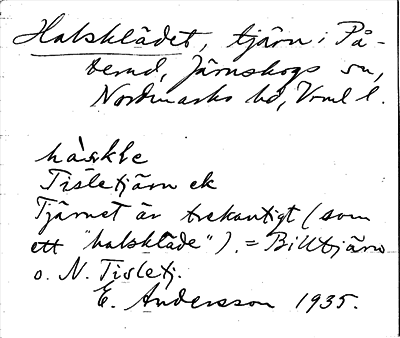 Halsklädet, tjärn i På-
terud, Järnskogs sn,
Nordmarks hd, Vrml l.
Tisletjärn ek
Tjärnet är trekantigt (som
ett "halskläde"). = Billtjärn
o. N. Tisletj.
E. Andersson 1935.